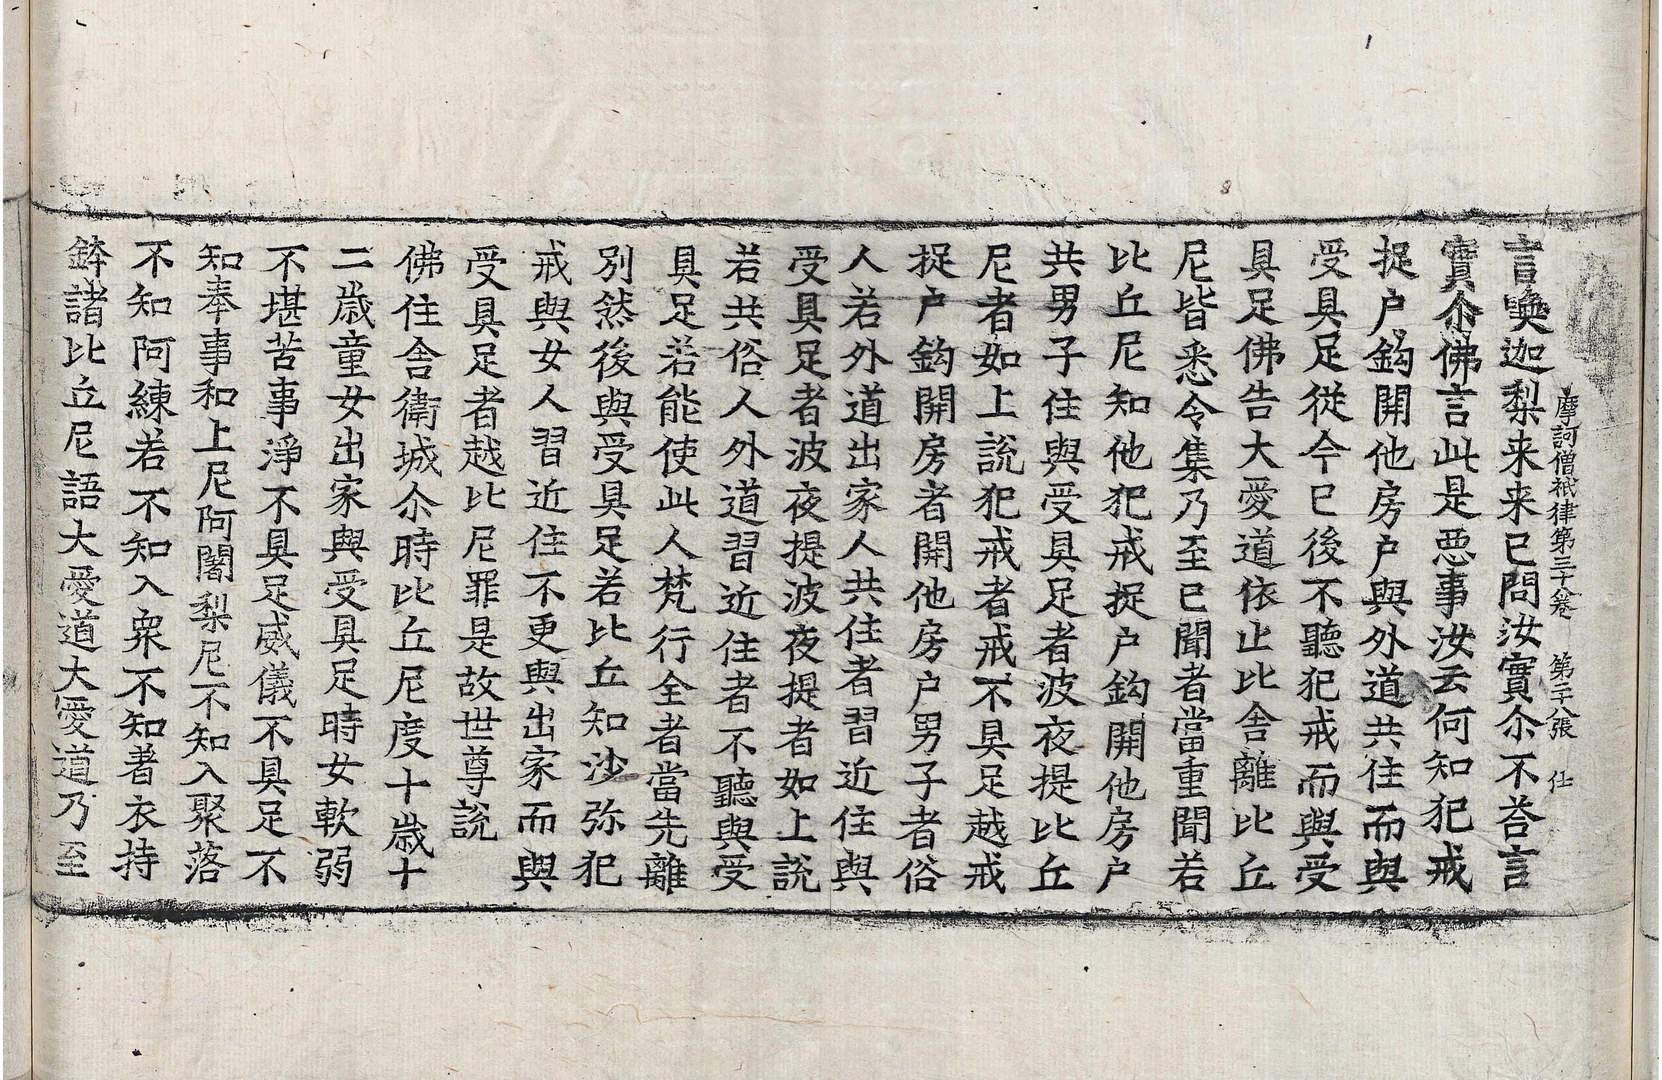 摩訶僧祇律第三十八卷　第二十八張　仕
言喚迦梨来来已問汝實尒不荅言
實尒佛言此是惡事汝云何知犯戒
捉户鈎開他房户與外道共住而與
受具足從今已後不聽犯戒而與受
具足佛告大愛道依止比舍離比丘
尼皆悉令集乃至已聞者當重聞若
比丘尼知他犯戒捉户鈎開他房户
共男子住與受具足者波夜提比丘
尼者如上說犯戒者戒不具足越戒
捉户鈎開房者開他房户男子者俗
人若外道出家人共住者習近住與
受具足者波夜提波夜提者如上說
若共俗人外道習近住者不聽與受
具足若能使此人梵行全者當先離
別然後與受具足若比丘知沙弥犯
戒與女人習近住不更與出家而與
受具足者越比尼罪是故世尊說
佛住舍衛城尒時比丘尼度十歲十
二歲童女出家與受具足時女軟弱
不堪苦事淨不具足威儀不具足不
知奉事和上尼阿闍梨尼不知入聚落
不知阿練若不知入衆不知著衣持
鉢諸比丘尼語大愛道大愛道乃至